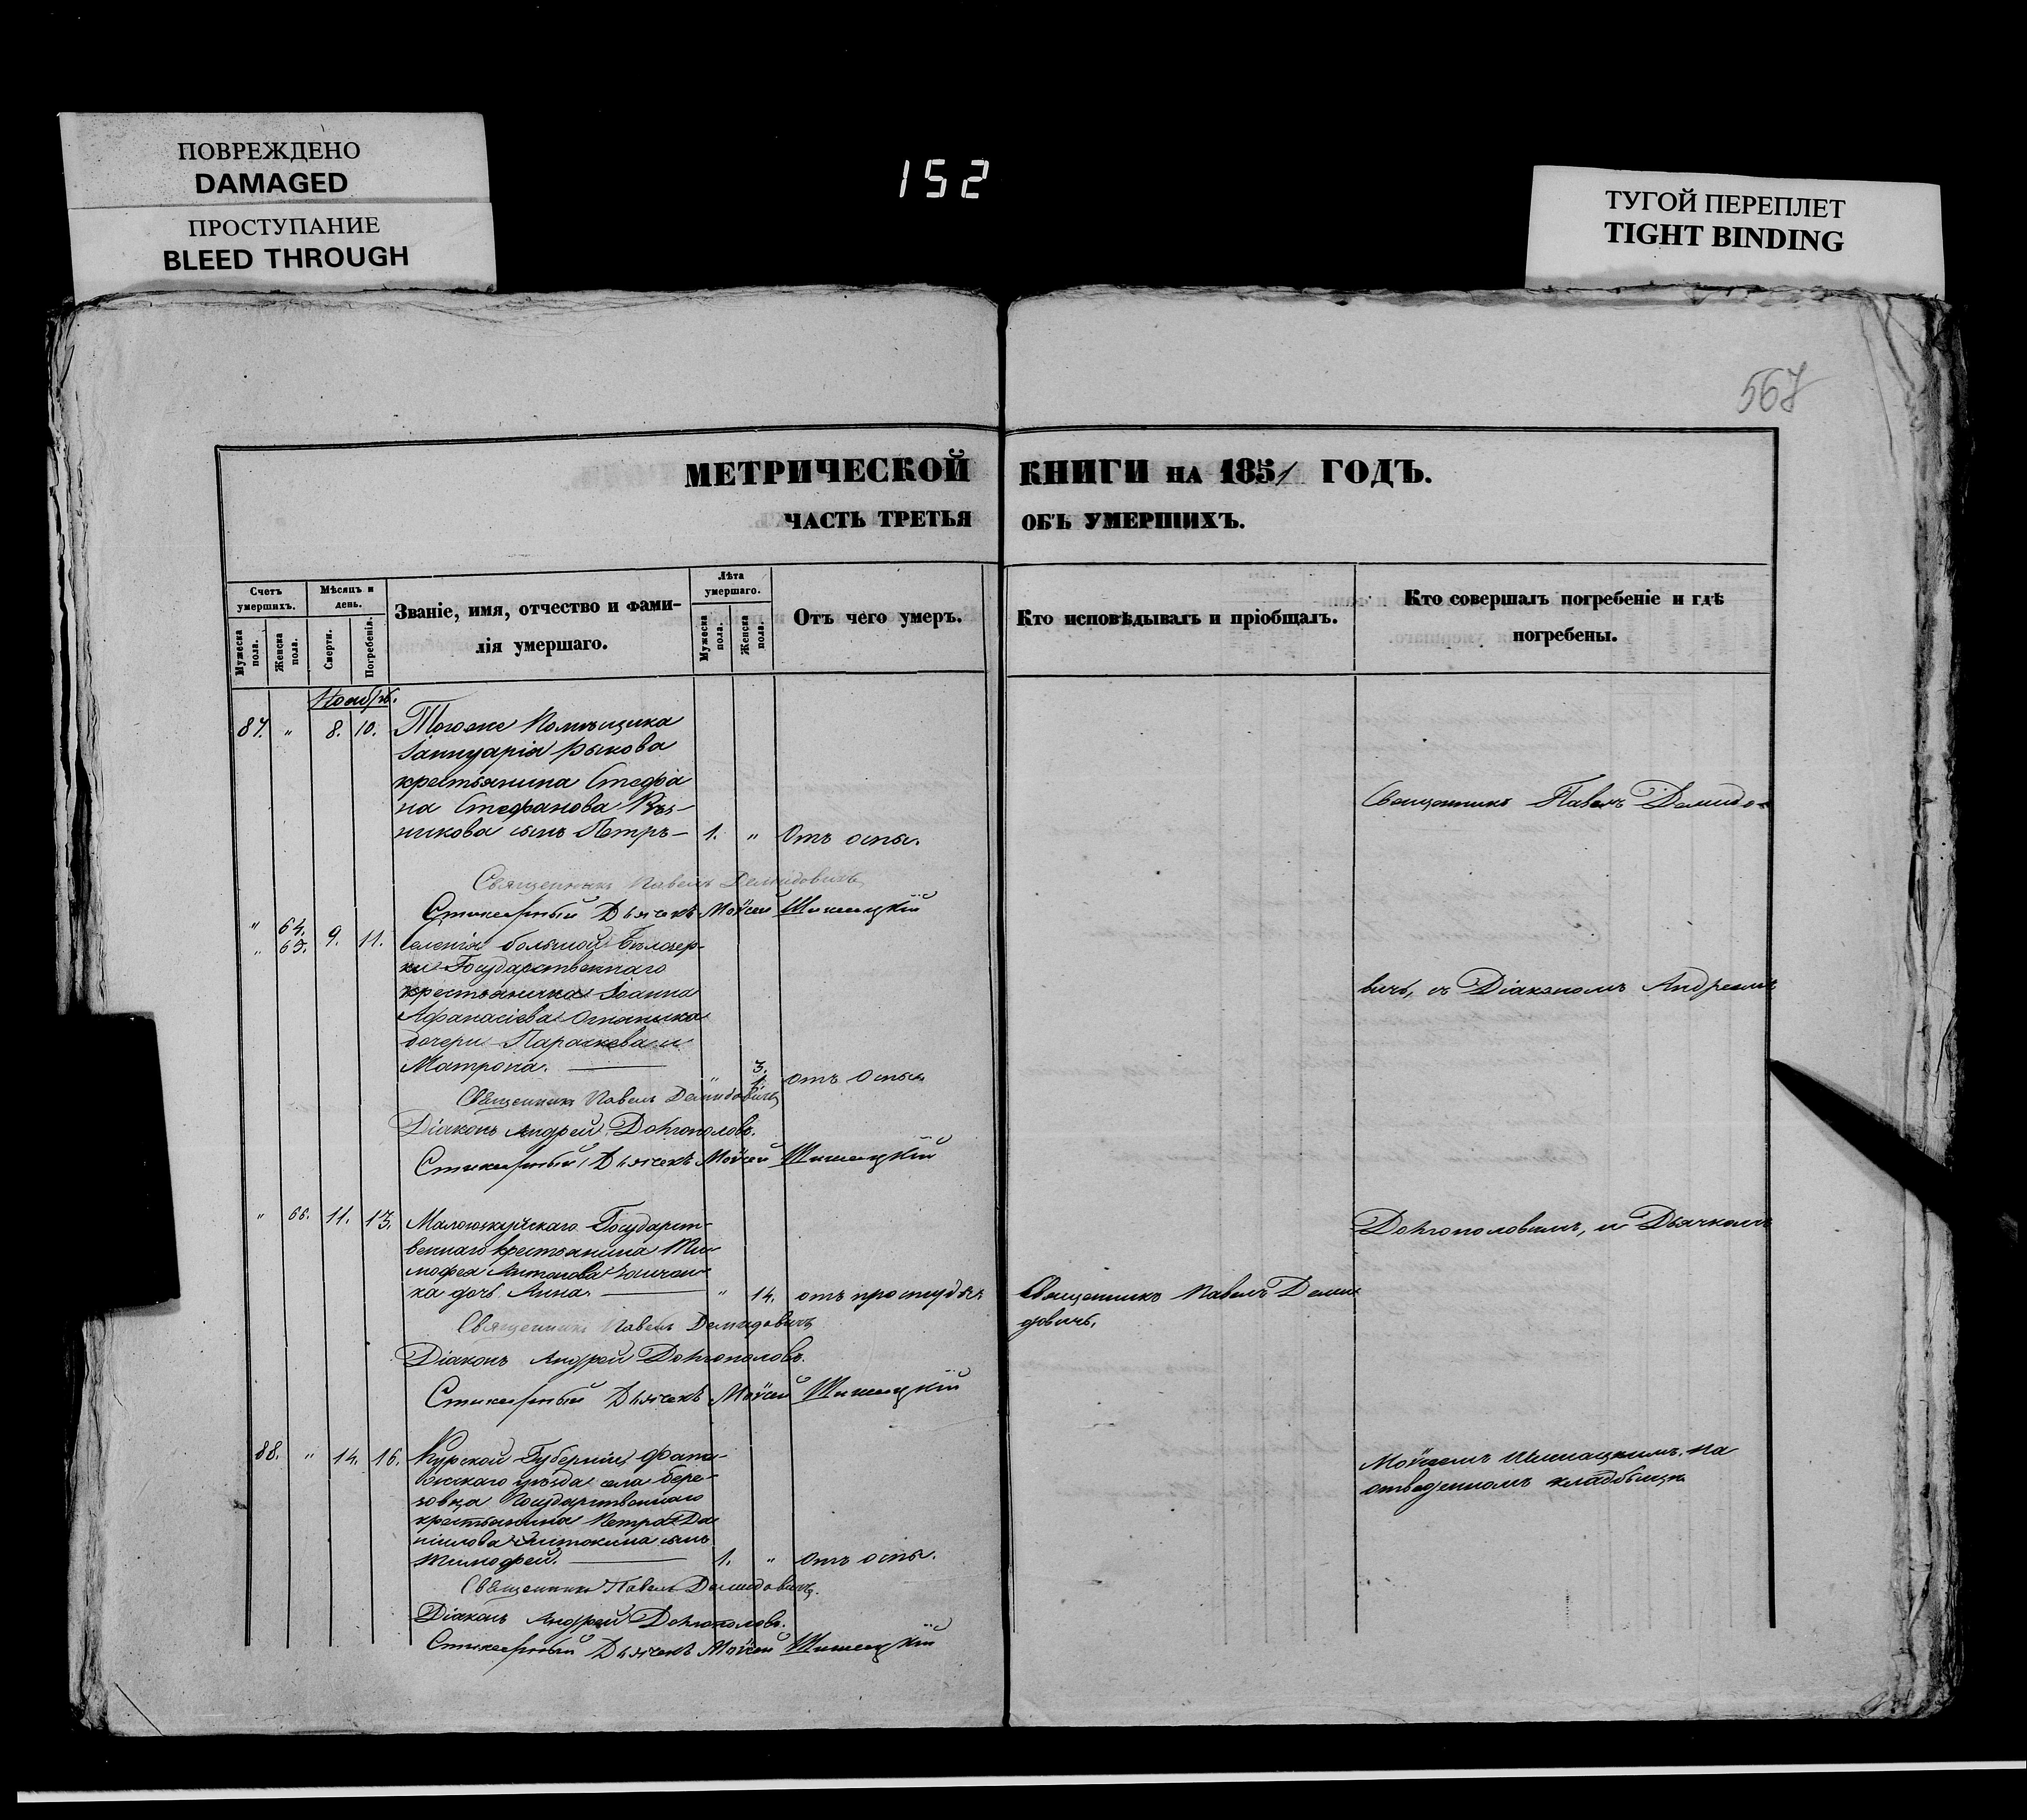 ПОВРЕЖДЕНО
DAMAGED
ПРОСТУПАНИЕ
BLEED THROUGH
152
ТУГОЙ ПЕРЕПЛЕТ
TIGHT BINDING
567
МЕТРИЧЕСКОЙ КНИГИ НА 1851 ГОДЪ.
ЧАСТЬ ТРЕТЬЯ ОБЪ УМЕРШИХЪ.
Счетъ умершихъ.
Мужеска пола.
Женска пола.
Мѣсяцъ и день.
Смерти.
Погребенія.
Званіе, имя, отчество и фами-
лія умершаго.
Лѣта умершаго.
Мужеска пола.
Женска пола.
Отъ чего умеръ.
Кто исповѣдывалъ и пріобщалъ.
Кто совершалъ погребеніе и гдѣ
погребены.
Ноябрь.
87. " 8. 10. Тогоже Помѣщика
Іаннуарія Рыкова
крестьянина Стефа
на Стефанова
никова сынъ Петръ — 1. " Отъ оспы.
Священникъ Павелъ Демидовичъ
Стихарный Дьячекъ Моѵсей
" 64. 9. 11. Селенія большой Бѣлозер-
" 65.
ки Государственнаго
крестьянина Іоанна
Афанасіева
дочери Параскева и
Матрона. — " 3. отъ Оспы
1.
Священникъ Павелъ Демидовичъ
Діаконъ Андрей Долгополовъ.
Стихарный Дьячекъ Моѵсей
" 66. 11. 13. Государст-
веннаго крестьянина Ти-
мофея Антонова
ка дочь Анна. — " 14. отъ простуды
Священникъ Павелъ Демидовичъ
Діаконъ Андрей Долгополовъ.
Стихарный Дьячекъ Моѵсей
88. " 14. 16. Курской Губерніи Фате-
жскаго уѣзда села бере-
зовца Государственнаго
крестьянина Петра Да
ніилова сынъ
Тимофей. — 1. " отъ оспы.
Священникъ Павелъ Демидовичъ.
Діаконъ Андрей Долгополовъ.
Стихарный Дьячекъ Моѵсей
Священникъ Павелъ Деми
довичъ.
Священникъ Павелъ Демидо-
вичъ, съ Діакономъ Андреемъ
Долгополовымъ, и Дьячкомъ
Моѵсеемъ на
отведенномъ кладбищѣ